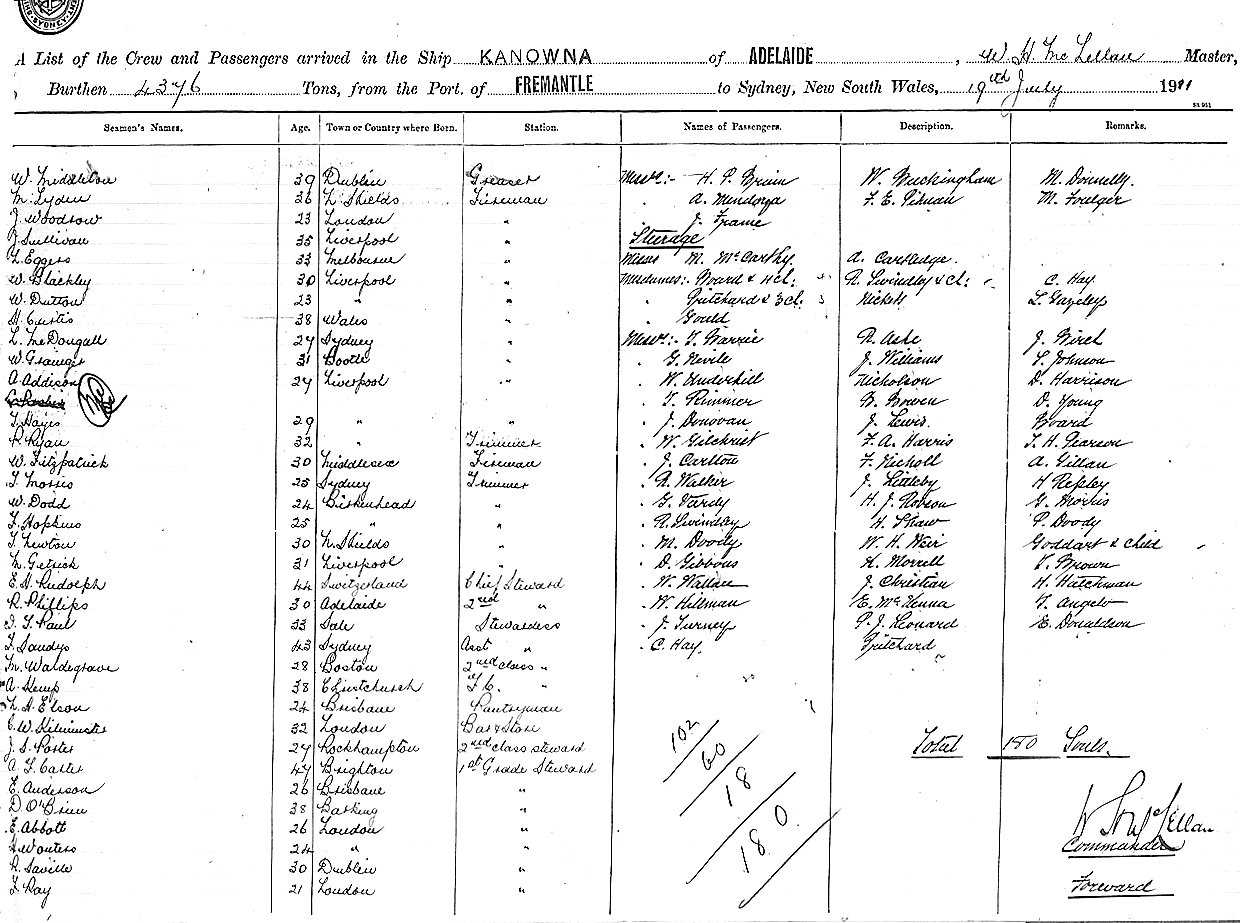 A List of the Crew and Passengers arrived in the Ship KANOWNA of ADELAIDE, W. H. McLellan Master,
Burthen 4376 Tons, from the Port of FREMANTLE to Sydney, New South Wales, 19th July 1911
Seamen's Names. Age. Town or Country where Born. Station. Names of Passengers. Description. Remarks.
W. Middleton 39 Dublin Greaser Messrs:- H. P. W. Buckingham M. Donnelly.
M. Lyden 36 N. Shields Fireman " A. Mendoza F. E. Pitman M. Foulger
J. Woodrow 23 London " " J. Frame
J. Sullivan 35 Liverpool " Sturage
L. Eggers 33 Melbourne " Messrs M. McCarthy. A. Cartledge.
W. Blackley 30 Liverpool " Mesdames:- Board & 4 cl: R. Swindley & cl: C. Hay
W. Dutton 23 " " " Pritchard & 3 cl. Nicholl L. Gazeley
H. Curtis 38 Wales " " Gould
L. McDougall 27 Sydney " Messrs:- T. Barrie R. Ashe J. Birch
W. Grainger 31 Bootle " " G. Nevile J. Williams T. Johnson
A. Addison 27 Liverpool " " W. Underhill Nicholson D. Harrison
" T. Rimmer B. Bowen D. Young
T. Hayes 29 " " J. Donovan J. Lewis Board
R. Ryan 32 " Trimmer " W. Gilchrist F. A. Harris T. H. Pearson
W. Fitzpatrick 30 Middlesex Fireman " J. Carlton F. Nicholl A. Gillan
T. Morris 25 Sydney Trimmer " R. Walker J. Littleby H Hepley
W. Dodd 24 Birkenhead " " G. Vardy H. J. Robson G. Morris
T. Hopkins 25 " " " R. Swindley H. Shaw P. Doody
T. Newton 30 N. Shields " " M. Doody W. H. Weir Goddart & Child
N. Getrick 31 Liverpool " " D. Gibbons K. Morrell T. Brown
E. A. Rudolph 44 Switzerland Chief Steward " W. Wallan J. Christian H. Hatchman
R. Phillips 30 Adelaide 2nd " " W. Hillman E. McKenna T. Angelo
T. Paul 33 Sale Stewardess " J. Turney P. J. Leonard E. Donaldson
T. Sandys 43 Sydney Asst " " C. Hay. Pritchard
M. Waldegrave 28 Boston 2nd class "
A. Kemp 38 Christchurch "
H. Elson 24 Brisbane Pantryman
C. W. Kilminster 32 London Bar & Store
J. S. Porter 27 Rockhampton 2nd class steward Total 180 Souls.
A. L. Carter 47 Brighton 1st Grade Steward
E. Anderson 26 Brisbane "
D. O'Brien 38 Barking "
E. Abbott 26 London "
Wouters 24 " "
R. Saville 30 Dublin "
T. Ray 21 London "
102
60
18
180
W H McLellan
Commander
Forward